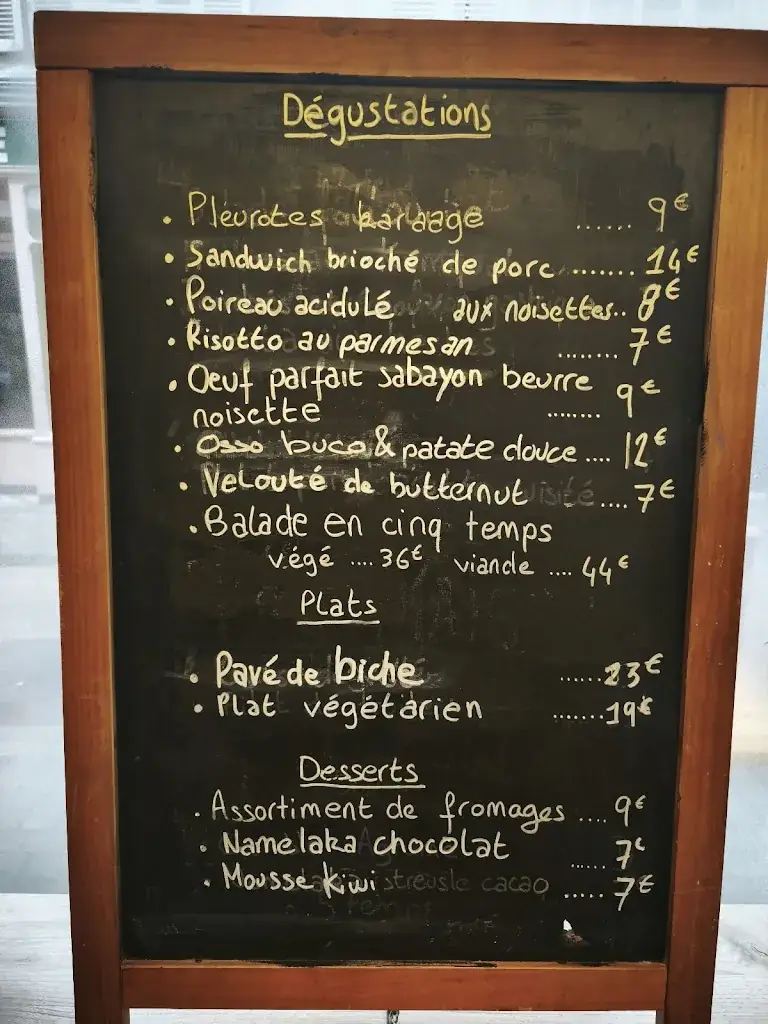 Dégustations
• Pleurotes karaage ...... 9€
• Sandwich brioché de porc ....... 14€
• Poireau acidulé aux noisettes.. 8€
• Risotto au parmesan ........ 7€
• Oeuf parfait sabayon beurre
noisette ........ 9€
• Osso buco & patate douce .... 12€
• Velouté de butternut .... 7€
• Balade en cinq temps
végé .... 36€ viande .... 44€
Plats
• Pavé de biche ......23€
• Plat végétarien .......19€
Desserts
• Assortiment de fromages .... 9€
• Namelaka chocolat ...... 7€
• Mousse kiwi streusle cacao ..... 7€